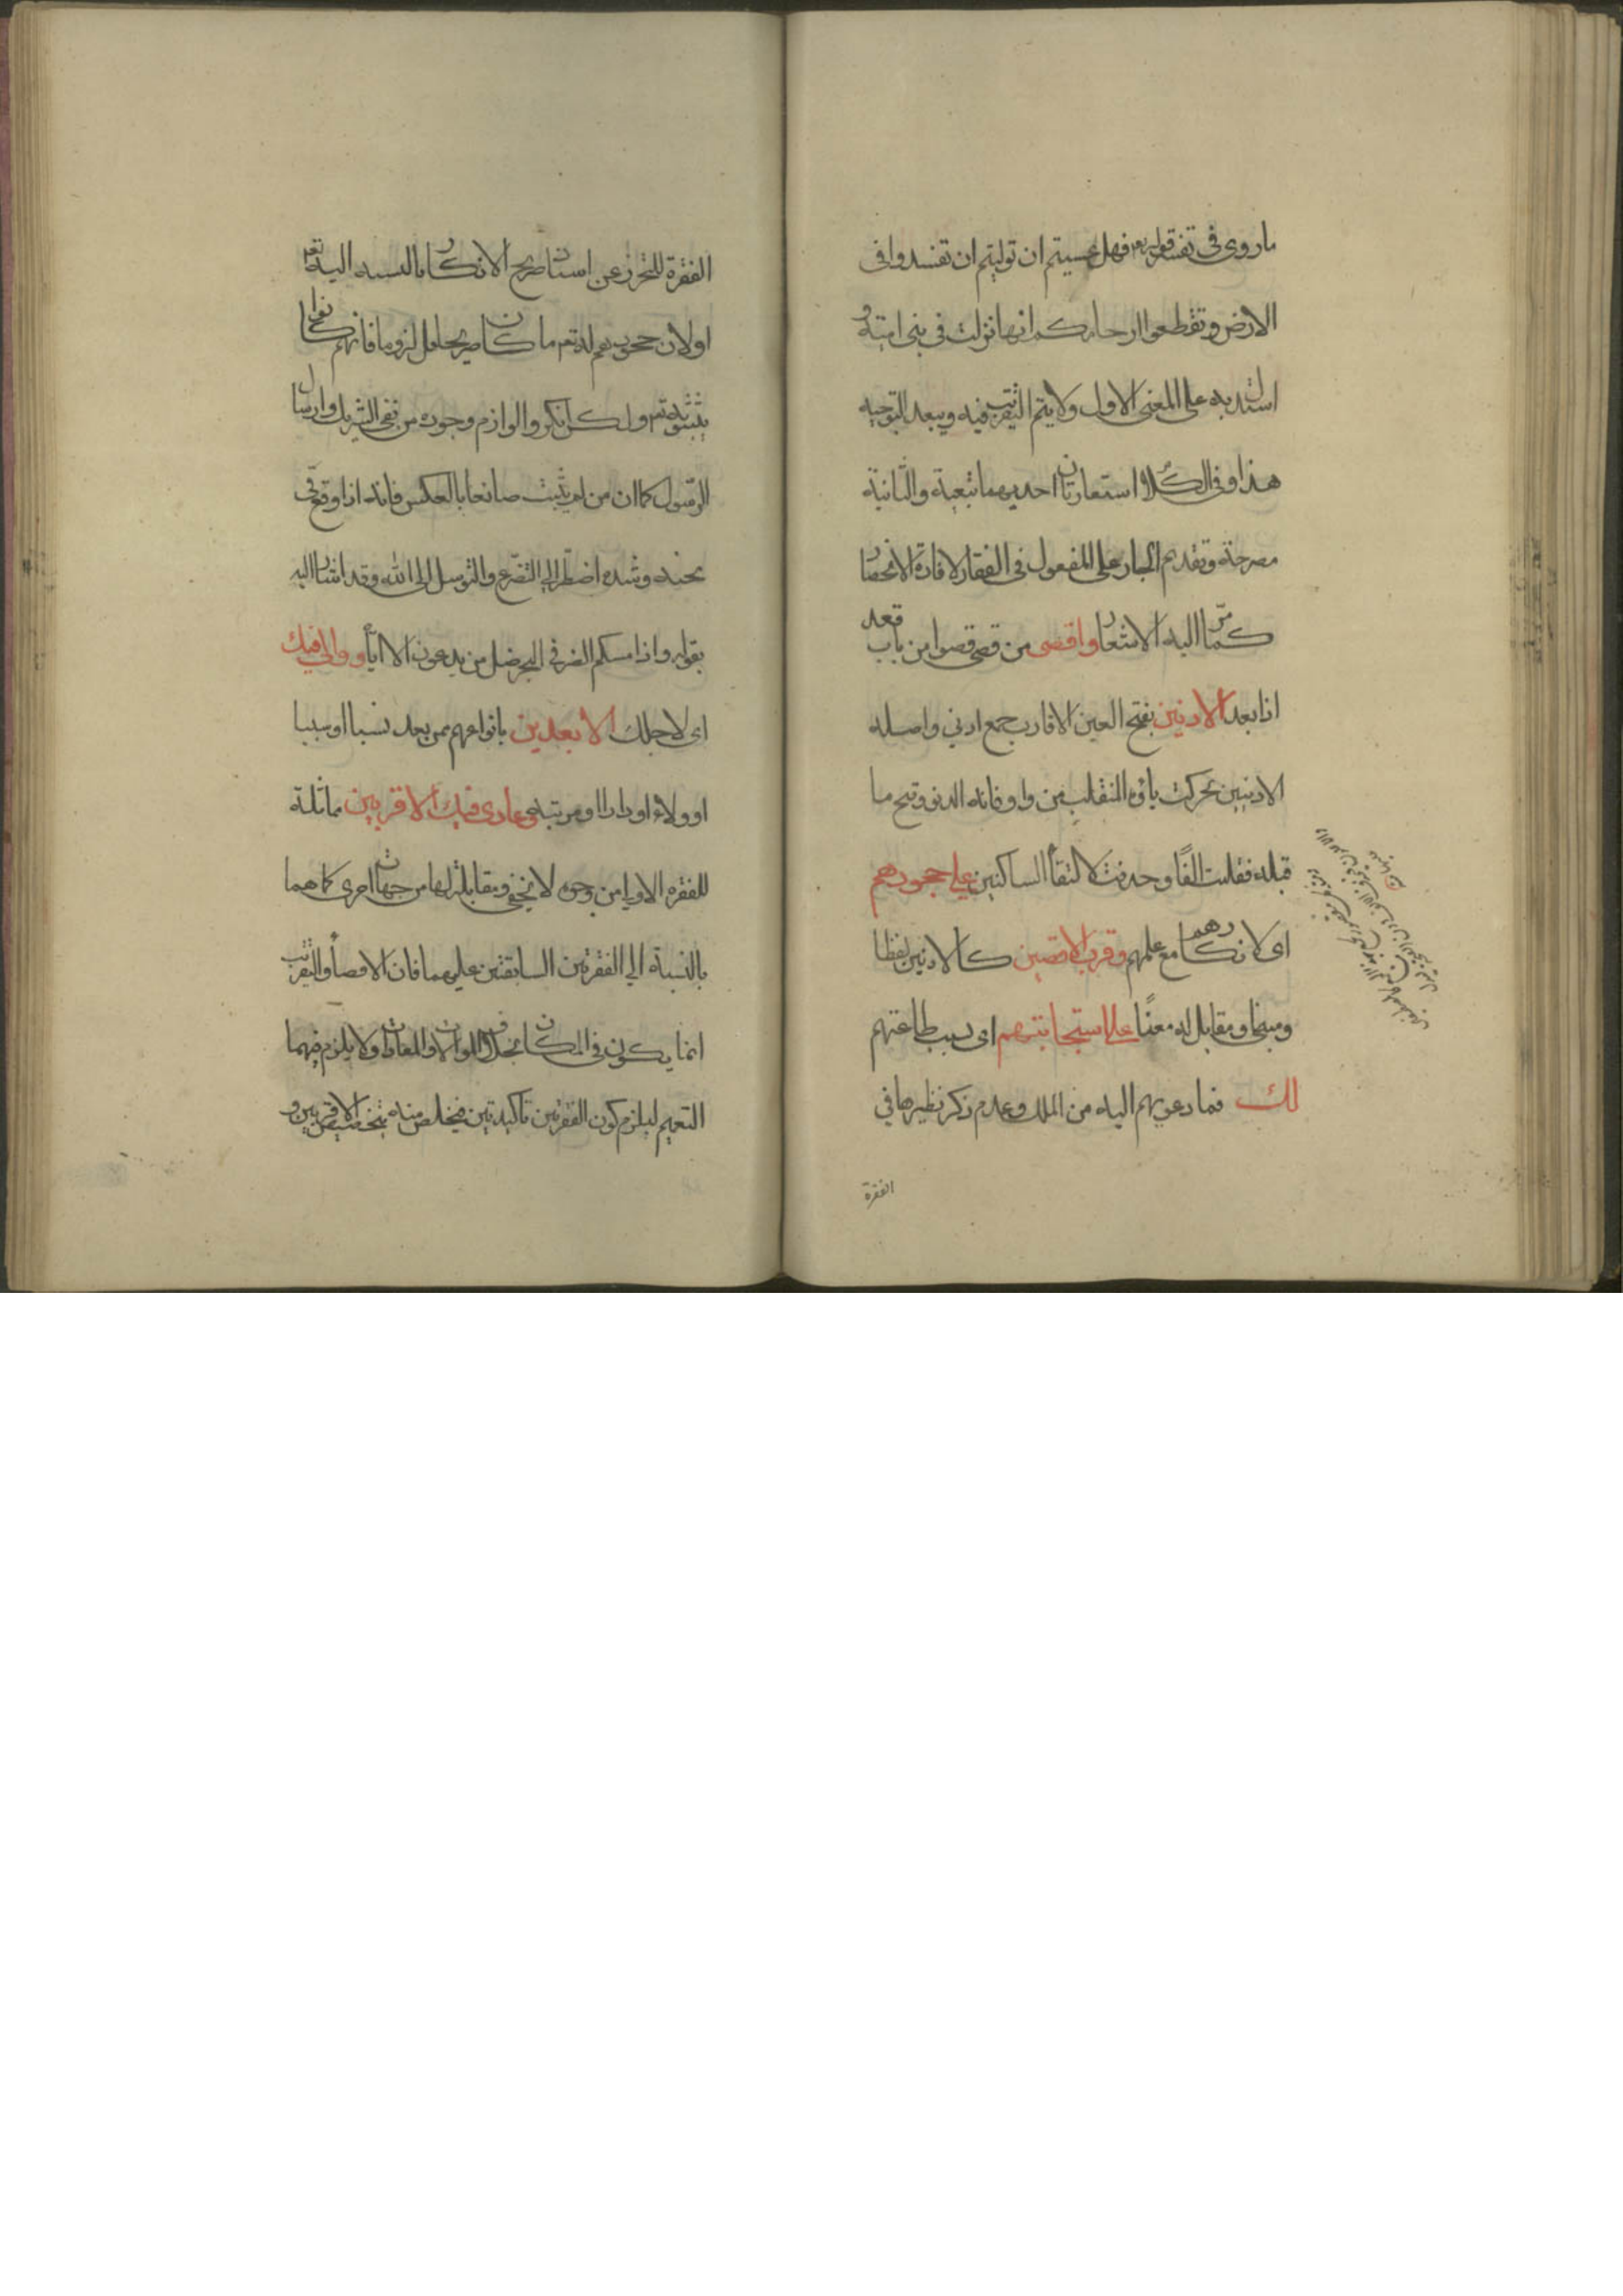 ما روى فى تفسير قوله تعه فهل عسيتم ان توليتم ان تفسدوا فى
الارض وتقطعوا ارحامكم انها نزلت فى بنى امية و
استدل به على المعنى الاول ولا يتم التقريب فيه ويبعد التوجيه
هذا وفى الكلام استعارتان احديهما تبعية والثانية
مصرحة وتقديم الجار على المفعول فى الفقار لافادة الانحصار
كما مرّ اليه الاشعار واقصى من قصى قصوا من باب قعد
اذا بعد الادنين بفتح العين الاقارب جمع ادنى واصله
الادنيين تحركت ياؤه المنقلب من واو فانه الدنو وفتح ما
قبله فقلبت الفًا وحذفت لالتقأ الساكنين على جحودهم
اى لانكارهم مع علمهم وقرب الاقصين كالادنين لفظا
ومبنى ومقابل له معنًا على استجابتهم اى بسبب طاعتهم
لك فما دعوتهم اليه من الملة وعدم ذكر نظيرها فى
الفقرة
الفقرة للتحرز عن اسناد صريح الانكار بالنسبه اليه تعه
او لان جحودهم له تعه ما كان صريحا بل لزوما فانهم كانوا
يثبتونه تعه ولكن انكروا لوازم وجوده من نفى الشريك وارسال
الرّسول كما ان من لم يثبت صانعا بالعكس فانه اذا وقع فى
محنه وشده اضطّر الى التضرّع والتوسل الى الله وقد اشار اليه
بقوله واذا مسكم الضر فى البحر ضل من يدعون الا اياه ووالى فيك
اى لاجلك الابعدين بانواعهم ممن بعد نسبا او سببا
او ولاء او دارا او مرتبة وعادى فيك الاقربين مماثلة
للفقره الاولى من وجوه لا يخفى ومقابلة لها من جهات اخرى كما هما
بالنسبة الى الفقرتين السابقتين عليهما فان الاقصأ والتقريب
انما يكون فى المكان بخلاف الموالات والمعادات ولا يلزم فيهما
التعميم ليلزم كون الفقرتين تاكيدتين فيخلص منه بتخصيص الاقربين و